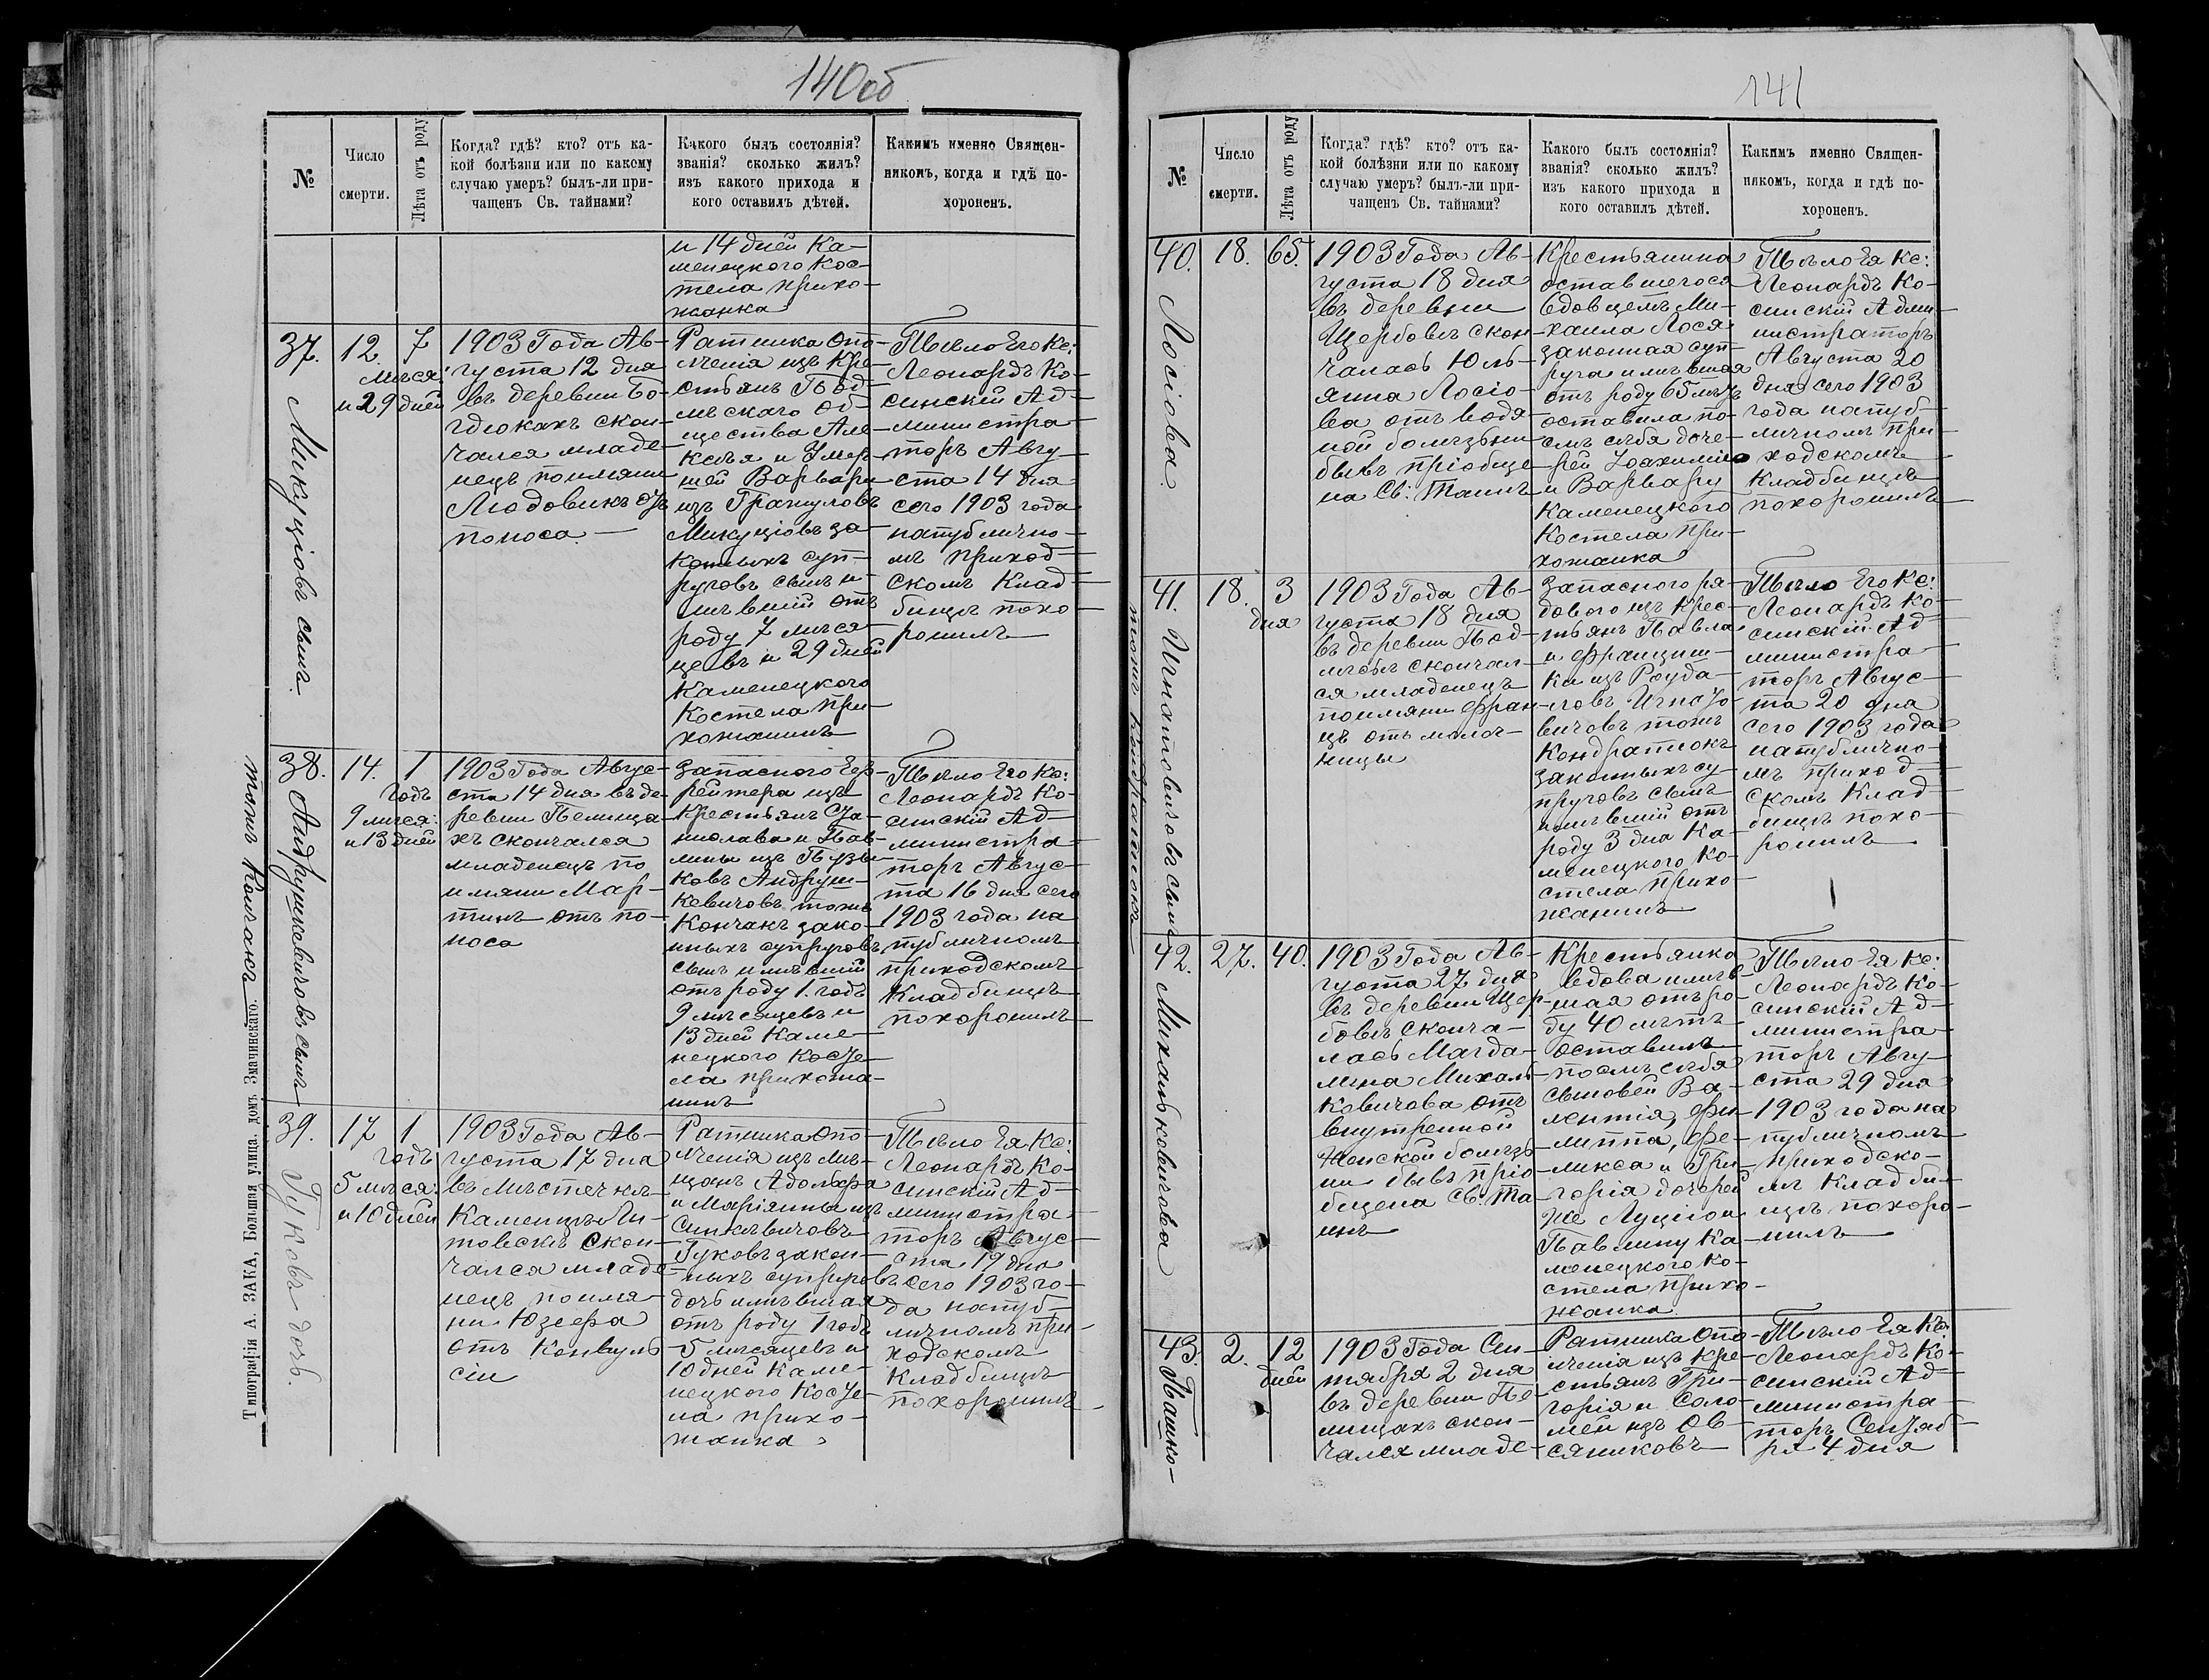 140об
№
Число
смерти.
Лѣта отъ роду
Когда? гдѣ? кто? отъ ка-
кой болѣзни или по какому
случаю умеръ? былъ-ли при-
чащенъ Св. тайнами?
Какого былъ состоянія?
званія? сколько жилъ?
изъ какого прихода и
кого оставилъ дѣтей.
Какимъ именно Священ-
никомъ, когда и гдѣ по-
хороненъ.
и 14 дней Ка-
менецкого Кос-
тела прихо-
жанка
37.
Микуціовъ сынъ.
12.
7
мѣся:
и 29 дней
1903 Года Ав-
густа 12 дня
въ деревни Бо-
гдюкахъ скон-
чался младе-
нецъ поимяни
Людовикъ отъ
поноса.
Ратника опо-
лченія изъ Кре-
стьянъ
скаго Об-
щества Але-
ксѣя и Умер-
шей Варвары
изъ
Микуціовъ за-
конныхъ суп-
руговъ сынъ и-
мѣвшій отъ
роду 7 мѣся-
цевъ и 29 дней
Каменецкого
Костела при-
хожанинъ
Тѣло Его Кс:
Леонардъ Ко-
синскій Ад-
министра-
торъ Авгу-
ста 14 дня
сего 1903 года
напублично-
мъ приход-
скомъ Клад-
бищѣ похо-
ронилъ
38.
Андрушкевичовъ сынъ
тожъ Кончакъ
14.
1
годъ
9 мѣся:
и 13 дней
1903 Года Авгус-
ста 14 дня въ де-
ревни Пелища-
хъ скончался
младенецъ по
имяни Мар-
тинъ отъ по-
носа
Запасного Еф-
рейтера изъ
Крестьянъ Ста-
нислава и Пав-
лины изъ Пузы-
ковъ Андруш-
кевичовъ тожъ
Кончакъ зако-
нныхъ супруговъ
сынъ имѣвшій
отъ роду 1. годъ
9 мѣсяцевъ и
13 дней Каме-
нецкого Косте-
ла прихожа-
нинъ
Тѣло Его Кс:
Леонардъ Ко-
синскій Ад-
министра-
торъ Авгус-
та 16 дня сего
1903 года на
публичномъ
приходскомъ
Кладбищѣ
похоронилъ
39.
Гуковъ дочь.
17
1
годъ
5 мѣся:
и 10 дней
1903 Года Ав-
густа 17 дня
въ мѣстечкѣ
Каменцѣ-Ли-
товскѣ скон-
чался младе-
нецъ поимя-
ни Юзефа
отъ Конвуль-
сіи
Ратника опо-
лченія изъ мѣ-
щанъ Адольфа
и Маріянны изъ
Синкѣвичовъ
Гуковъ закон-
ныхъ супруговъ
дочь имѣвшая
отъ роду 1 годъ
5 мѣсяцевъ и
10 дней Каме-
нецкого Косте-
ла прихо-
жанка
Тѣло Ея Кс:
Леонардъ Ко-
синскій Ад-
министра-
торъ Авгус-
ста 19 дня
сего 1903 го-
да напуб-
личномъ при-
ходскомъ
Кладбищѣ
похоронилъ
Типографія А. ЗАКА, Большая улица, домъ Змачинскаго.
141
№
Число
смерти.
Лѣта отъ роду
Когда? гдѣ? кто? отъ ка-
кой болѣзни или по какому
случаю умеръ? былъ-ли при-
чащенъ Св. тайнами?
Какого былъ состоянія?
званія? сколько жилъ?
изъ какого прихода и
кого оставилъ дѣтей.
Какимъ именно Священ-
никомъ, когда и гдѣ по-
хороненъ.
40.
Лосіова.
18.
65.
1903 Года Ав-
густа 18 дня
въ деревни
Щербовѣ скон-
чалась Юль-
янна Лосіо-
ва отъ водя-
ной болѣзни
бывъ пріобще-
на Св: Таинъ
Крестьянина
оставшегося
вдовцемъ Ми-
хаила Лося
законная суп-
руга имѣвшая
отъ роду 65 лѣтъ
оставила по-
слѣ себя доче-
рей Іоахимію
и Варвару
Каменецкого
Костела при-
хожанка
Тѣло Ея Кс:
Леонардъ Ко-
синскій Адми-
нистраторъ
Августа 20
дня сего 1903
года напуб-
личномъ при-
ходскомъ
Кладбищѣ
похоронилъ
41.
Игнатовичовъ сынъ
тожъ Кондратюкъ
18.
3
дня
1903 Года Ав-
густа 18 дня
въ деревни Под-
лѣсьѣ скончал-
ся младенецъ
поимяни Фран-
цъ отъ молоч-
ницы
Запасного ря-
дового изъ Крес-
тьянъ Павла
и Францишки
изъ Рауда-
ловъ Игнато-
вичовъ тожъ
Кондратюкъ
законныхъ су-
пруговъ сынъ
имѣвшій отъ
роду 3 дня Ка-
менецкого Ко-
стела прихо-
жанинъ
Тѣло Его Кс:
Леонардъ Ко-
синскій Ад-
министра-
торъ Авгус-
та 20 дня
сего 1903 года
напублично-
мъ приход-
скомъ Клад-
бищѣ похо-
ронилъ
42.
Михальковичова
27.
40.
1903 Года Ав-
густа 27 дня
въ деревни Щер-
бовѣ сконча-
лась Магда-
лина Михаль-
ковичова отъ
внутренной
Женской болѣз-
ни бывъ пріо-
бщена Св. Та-
инъ
Крестьянка
вдова имѣв-
шая отъ ро-
ду 40 лѣтъ
оставивъ
послѣ себя
сыновей Ва-
лентія, Фи-
липпа, Фе-
ликса и Гри-
горія дочерей
же Луцію и
Павлину Ка-
менецкого Ко-
стела прихо-
жанка.
Тѣло Ея Кс:
Леонардъ Ко-
синскій Ад-
министра-
торъ Авгу-
ста 29 дня
1903 года на
публичномъ
приходско-
мъ Кладби-
щѣ похоро-
нилъ
43.
Пашко-
2.
12
дней
1903 Года Сен-
тября 2 дня
въ деревни Пе-
лищахъ скон-
чался младе-
Ратника опо-
лченія изъ Кре-
стьянъ Гри-
горія и Соло-
меи изъ Ов-
сяниковъ
Тѣло Ея Кс:
Леонардъ Ко-
синскій Ад-
министра-
торъ Сентяб-
ря 4 дня